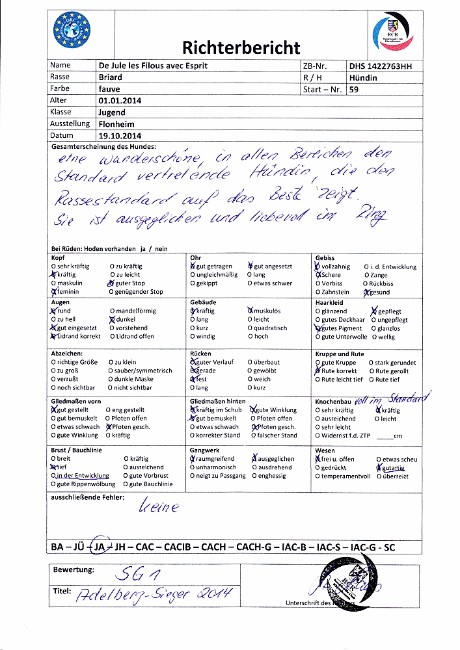 Richterbericht
Name De Jule les Filous avec Esprit ZB-Nr. DHS 1422763HH
Rasse Briard R / H Hündin
Farbe fauve Start – Nr. 59
Alter 01.01.2014
Klasse Jugend
Ausstellung Flonheim
Datum 19.10.2014
Gesamterscheinung des Hundes:
eine wunderschöne, in allen Bereichen den
Standard vertretende Hündin, die den
Rassestandard auf das Beste zeigt.
Sie ist ausgeglichen und liebevoll im Ring
Bei Rüden: Hoden vorhanden ja / nein
Kopf Ohr Gebiss
O sehr kräftig O zu kräftig gut getragen gut angesetzt vollzahnig O i. d. Entwicklung
kräftig O zu leicht O ungleichmäßig O lang Schere O Zange
O maskulin guter Stop O gekippt O etwas schwer O Vorbiss O Rückbiss
feminin O genügender Stop O Zahnstein gesund
Augen Gebäude Haarkleid
rund O mandelförmig kräftig muskulös O glänzend gepflegt
O zu hell dunkel O lang O leicht O gutes Deckhaar O ungepflegt
gut eingesetzt O vorstehend O kurz O quadratisch gutes Pigment O glanzlos
Lidrand korrekt O Lidrand offen O windig O hoch O gute Unterwolle O wellig
Abzeichen: Rücken Kruppe und Rute
O richtige Größe O zu klein guter Verlauf O überbaut O gute Kruppe O stark gerundet
O zu groß O sauber/symmetrisch gerade O gewölbt Rute korrekt O Rute gerollt
O verrußt O dunkle Maske fest O weich O Rute leicht tief O Rute tief
O noch sichtbar O nicht sichtbar O lang O kurz
Gliedmaßen vorn Gliedmaßen hinten Knochenbau voll im Standard
gut gestellt O eng gestellt kräftig im Schub gute Winkelung O sehr kräftig kräftig
O gut bemuskelt O Pfoten offen gut bemuskelt O Pfoten offen O ausreichend O leicht
O etwas schwach Pfoten gesch. O etwas schwach Pfoten gesch. O sehr leicht
O gute Winklung O kräftig O korrekter Stand O falscher Stand O Widerrist f.d. ZTP ____cm
Brust / Bauchlinie Gangwerk Wesen
O breit O kräftig raumgreifend ausgeglichen frei u. offen O etwas scheu
tief O ausreichend O unharmonisch O ausdrehend O gedrückt gutartig
O in der Entwicklung O gute Vorbrust O neigt zu Passgang O enghessig O temperamentvoll O überreizt
O gute Rippenwölbung O gute Bauchlinie
ausschließende Fehler:
keine
BA – JÜ – JA – JH – CAC – CACIB – CACH – CACH-G – IAC-B – IAC-S – IAC-G - SC
Bewertung: SG 1
Titel: Adelberg-Sieger 2014
Unterschrift des